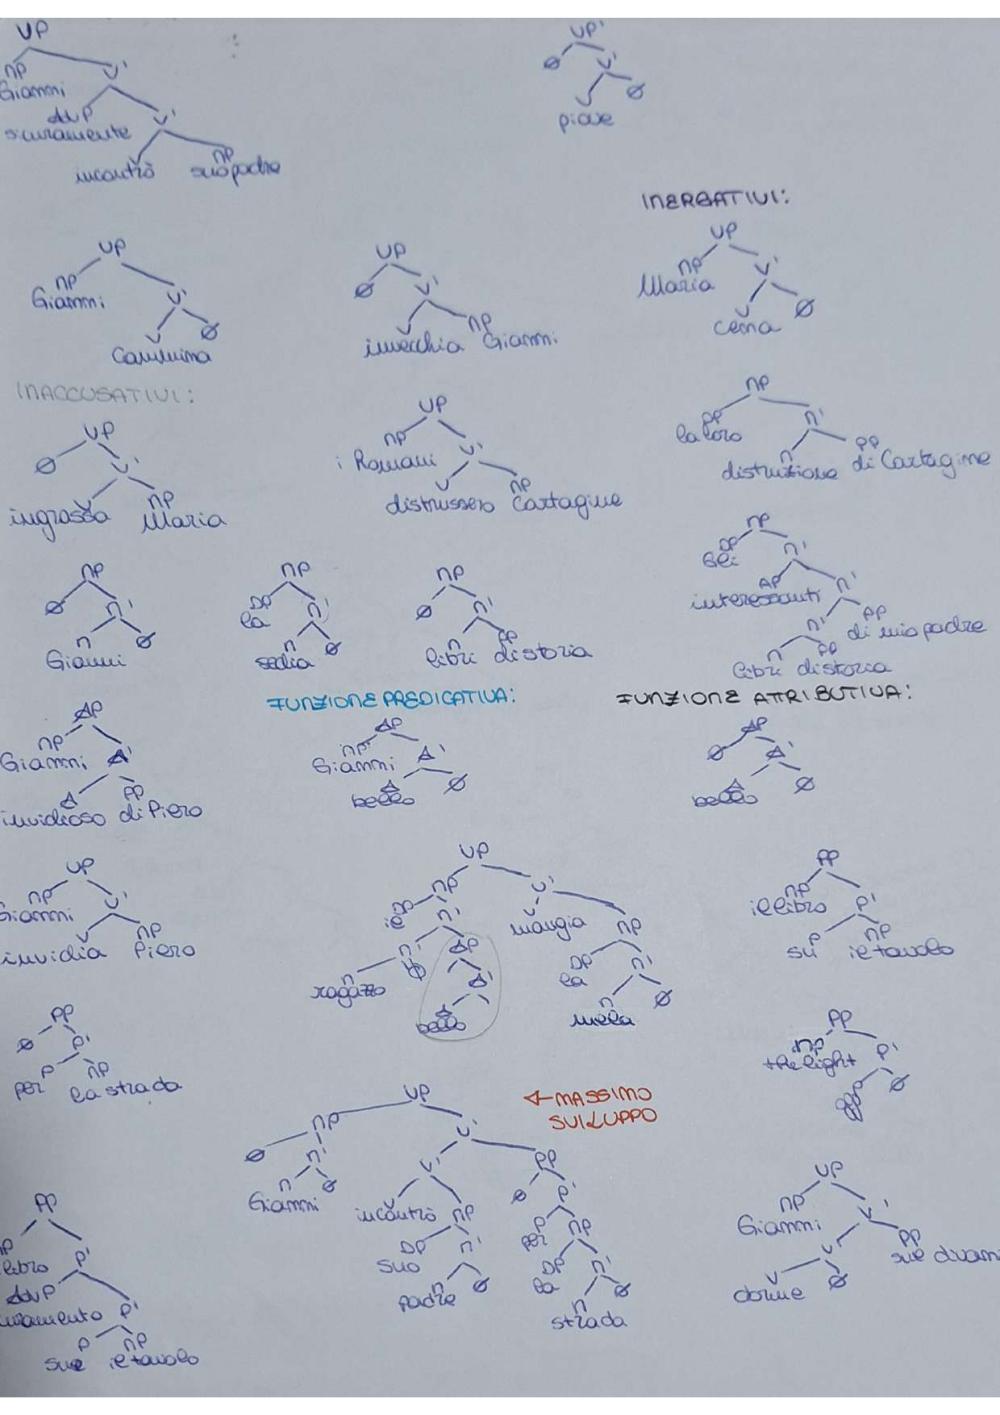 VP
NP
Gianni
V'
AdvP
sicuramente
V'
incontrò
NP
suo padre
VP'
Ø
V'
V
Ø
piove
INERGATIVI:
VP
NP
Gianni
V'
V
Ø
cammina
VP
Ø
V'
V
NP
invecchia Gianni
VP
NP
Maria
V'
V
Ø
cena
INACCUSATIVI:
VP
Ø
V'
V
NP
ingrassa Maria
VP
NP
i Romani
V'
V
NP
distrussero Cartagine
NP
DP
la loro
N'
N
PP
distruzione di Cartagine
NP
Ø
N'
N
Ø
Gianni
NP
DP
la
N'
N
Ø
sedia
NP
Ø
N'
N
PP
libri di storia
NP
DP
N'
AP
interessanti
N'
N'
PP
di mio padre
N
PP
libri di storia
FUNZIONE PREDICATIVA:
FUNZIONE ATTRIBUTIVA:
AP
NP
Gianni
A'
A
PP
invidioso di Piero
AP
NP
Gianni
A'
A
Ø
bello
AP
Ø
A'
A
Ø
bello
VP
NP
Gianni
V'
V
NP
invidia Piero
VP
NP
V'
DP
il
N'
mangia
NP
N'
AP
DP
la
N'
ragazzo
Ø
A'
N
Ø
A
bello
mela
PP
NP
il libro
P'
P
NP
su il tavolo
PP
Ø
P'
P
NP
per la strada
PP
NP
the light
P'
Ø
← MASSIMO
SVILUPPO
VP
NP
V'
Ø
N'
V'
PP
N
Ø
Gianni
incontrò
NP
Ø
P'
DP
suo
N'
P
per
NP
N
Ø
padre
DP
la
N'
N
Ø
strada
PP
NP
libro
P'
AdvP
P'
P
NP
sul il tavolo
VP
NP
Gianni
V'
V'
PP
V
Ø
dorme